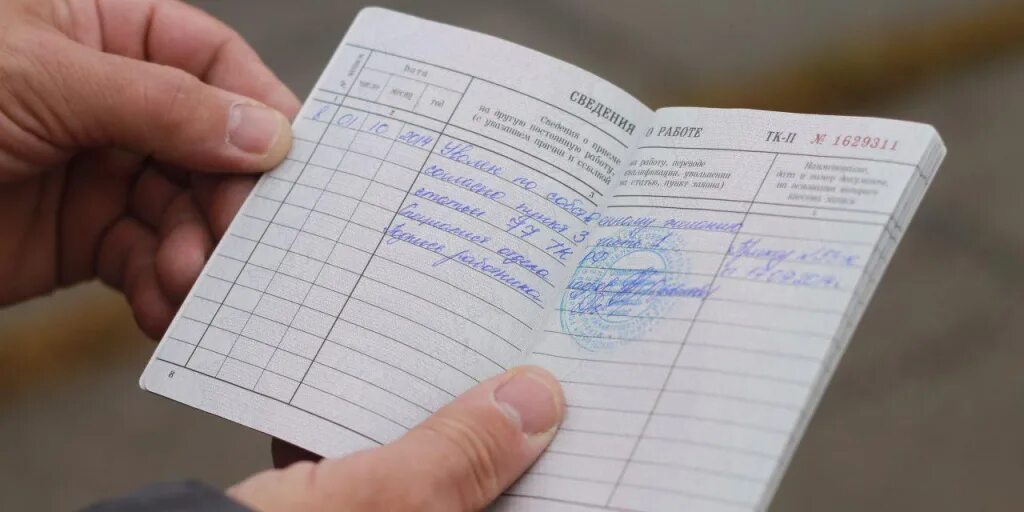 СВЕДЕНИЯ О РАБОТЕ
ТК-II № 1629311
Дата
число
месяц
год
Сведения о приеме
на другую постоянную работу,
(с указанием причин и ссылкой
на работу, переводе
квалификации, увольнении
на статью, пункт закона)
Наименование,
дата и номер документа,
на основании которого
внесена запись
2
3
4
8 01 10 2014 Уволен по собственному желанию
согласно пункта 3 части 1
статьи 77 ТК РФ
Специалист отдела
Подпись работника
Приказ
8